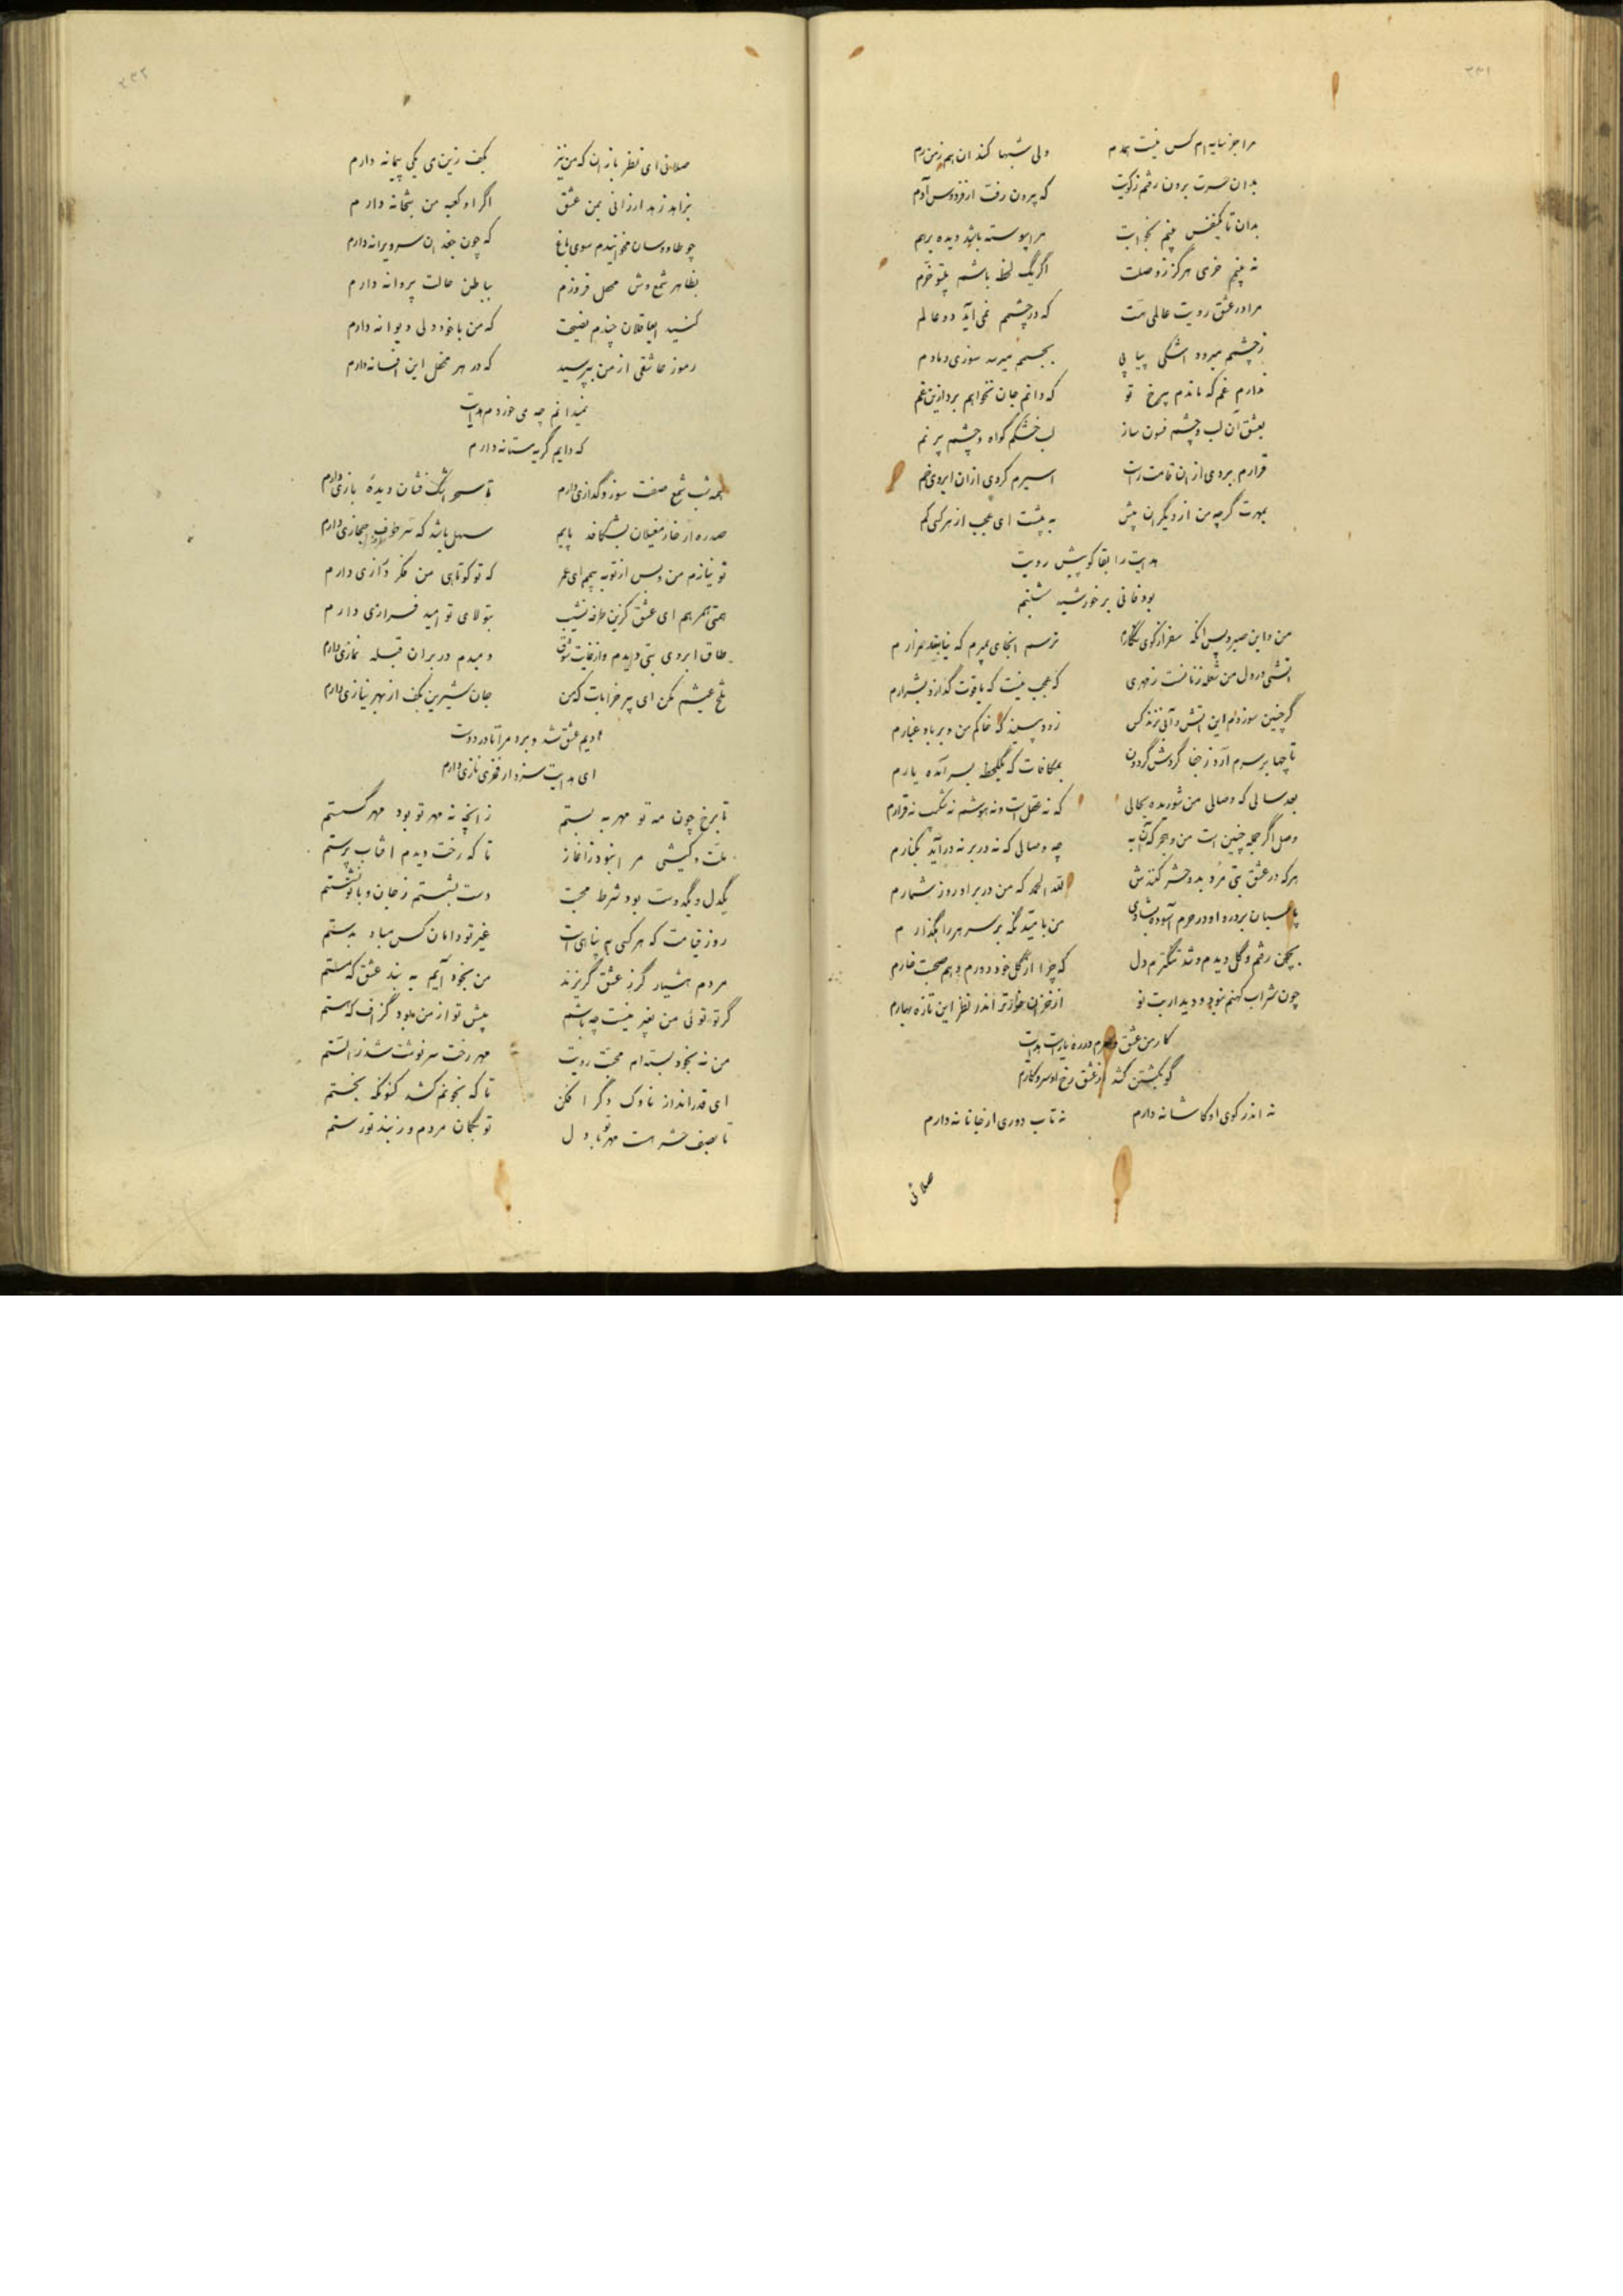 ۲۳۱
مرا جز سایه ام کس نیست همدم
ولی شبها کند آن هم ز من رم
بدان حسرت برون رفتم ز کویت
که بیرون رفت از فردوس آدم
بدان تا یکنفس بینم بخوابت
مرا پیوسته باشد دیده برهم
نه بینم خرمی هرگز ز وصلت
اگر یک لحظه باشم بیتو خرم
مرا در عشق رویت عالمی هست
که در چشمم نمی آید دو عالم
ز چشمم میرود اشکی پیاپی
بجسمم میرسد سوزی دمادم
ندارم غم که ماندم بیرخ تو
که دانم جان نخواهم برد ازین غم
بعشق آن لب و چشم فسون ساز
لب خشکم گواه و چشم پر نم
قرارم بردی از ان قامت راست
اسیرم کردی از ان ابروی خم
بمهرت گرچه من از دیگران بیش
به پیشت ای عجب از هر کسی کم
هدایت را بقا کو پیش رویت
بود فانی بر خورشید شبنم
من و این صبر و پس آنکه سفر از کوی نگارم
ترسم آنجای بمیرم که نیابند مزارم
آتشی در دل من شعله زنانست ز مهری
که عجب نیست که یاقوت گدازد بشرارم
گر چنین سوزدم این آتش و آبی نزند کس
زود بینید که خاکم من و بر باد غبارم
تا چها بر سرم آرد ز جفا گردش گردون
بمکافات که یکلحظه بسر آمده یارم
بعد سالی که وصالی من شوریده بحالی
که نه عقل است و نه هوشم نه شکیب نه قرارم
وصل اگر جمله چنین است من و هجر که آن به
چه وصالی که نه در بر نه درآید بکنارم
هرکه در عشق بتی مرد بدو حشر کنندش
لله الحمد که من در بر او روز شمارم
پاسبان بر در و او در حرم آسوده بشادی
من بامید نگه بر سر هر راهگذارم
بچمن رفتم و گل دیدم و شد تنگترم دل
که چرا از گل خود دورم و هم صحبت خارم
چون شراب کهنم نبود و دیدار بت نو
از خزان خوارتر اندر نظر این تازه بهارم
کار من عشق و سرم در ره یار است هدایت
گو بکشتن کشد از عشق رخ او سر و کارم
نه اندر کوی او کاشانه دارم
نه تاب دوری از جانانه دارم
صلائی
۲۳۲
صلائی ای نظر بازان که من نیز
بکف زین می یکی پیمانه دارم
بزاهد زهد ارزانی بمن عشق
اگر او کعبه من بتخانه دارم
چو طاووسان مخوانیدم سوی باغ
که چون جغدان سر ویرانه دارم
بظاهر شمع وش محفل فروزم
بباطن حالت پروانه دارم
کنید ایعاقلان چندم نصیحت
که من با خود دلی دیوانه دارم
رموز عاشقی از من بپرسید
که در هر محفل این افسانه دارم
نمیدانم چه می خوردم هدایت
که دایم گریه مستانه دارم
همه شب شمع صفت سوز و گدازی دارم
تا سحر اشک فشان دیدهٔ بازی دارم
صد ره ار خار مغیلان بشکافد پایم
سهل باشد که سر طوف حجازی دارم
تو نیازم من و بس از تو به بیم ای عمر
که تو کوتاهی من فکر درازی دارم
همتی همرهم ای عشق کزین طرفه نشیب
بتولای تو امید فرازی دارم
طاق ابروی بتی دیدم و از غایت شوق
دمبدم در بر آن قبله نمازی دارم
تلخ عیشم مکن ای پیر خرابات که من
جان شیرین بکف از بهر نیازی دارم
هادیم عشق شد و برد مرا تا در دوست
ای هدایت سزد ار فخری و نازی دارم
تا برخ چون مه تو مهر به بستم
ز آنچه نه مهر تو بود مهر گسستم
ملت و کیشی مرا نبود ز آغاز
تا که رخت دیدم آفتاب پرستم
یکدل و یکدوست بود شرط محبت
دست بشستم ز جان و با تو نشستم
روز قیامت که هر کسی به پناهی است
غیر تو دامان کس مباد بدستم
مردم هشیار گر ز عشق گریزند
من بخود آیم به بند عشق که مستم
گر تو توئی من بغیر نیست چه باشم
پیش تو از من بود گزاف که هستم
من نه بخود بسته ام محبت رویت
مهر رخت سرنوشت شد ز الستم
ای قدر انداز ناوک دگر افکن
تا که بخونم کشد کنونکه بخستم
تا بصف حشر هست مهر تو با دل
تو بگمان مردم و ز بند تو رستم